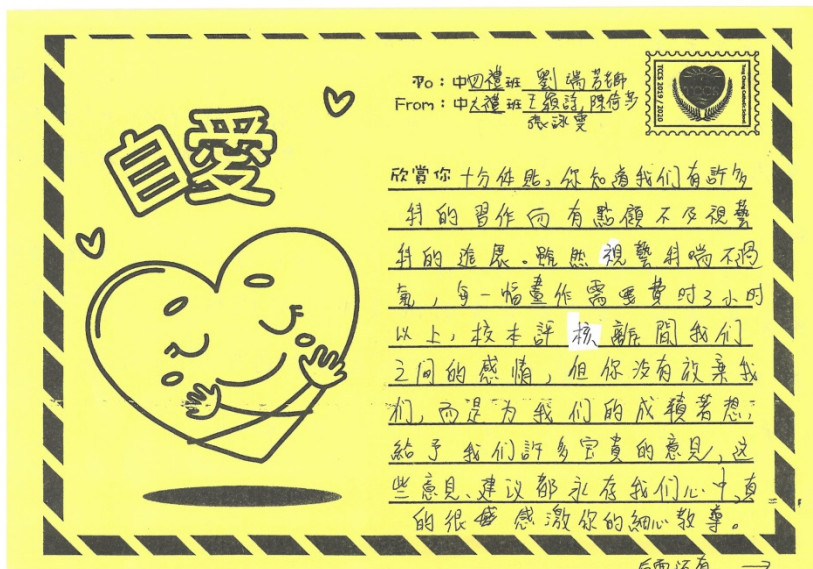 自愛
To：中四禮班 劉端芳師
From：中六禮班 王穎詩 陳倚莎
張詠雯
TCCS 2019 / 2020
Tung Chung Catholic School
TCCS
欣賞你 十分体貼。你知道我们有許多
科的習作而有點顧不及視藝
科的進展。雖然視藝科喘不過
氣，每一幅畫作需要費时3小时
以上，校本評核離間我们
之间的感情，但你没有放棄我
们，而是为我们的成積着想，
給予我们許多宝貴的意見，这
些意見、建议都永存我们心中，真
的很 感激你的細心教導。
后面还有 →